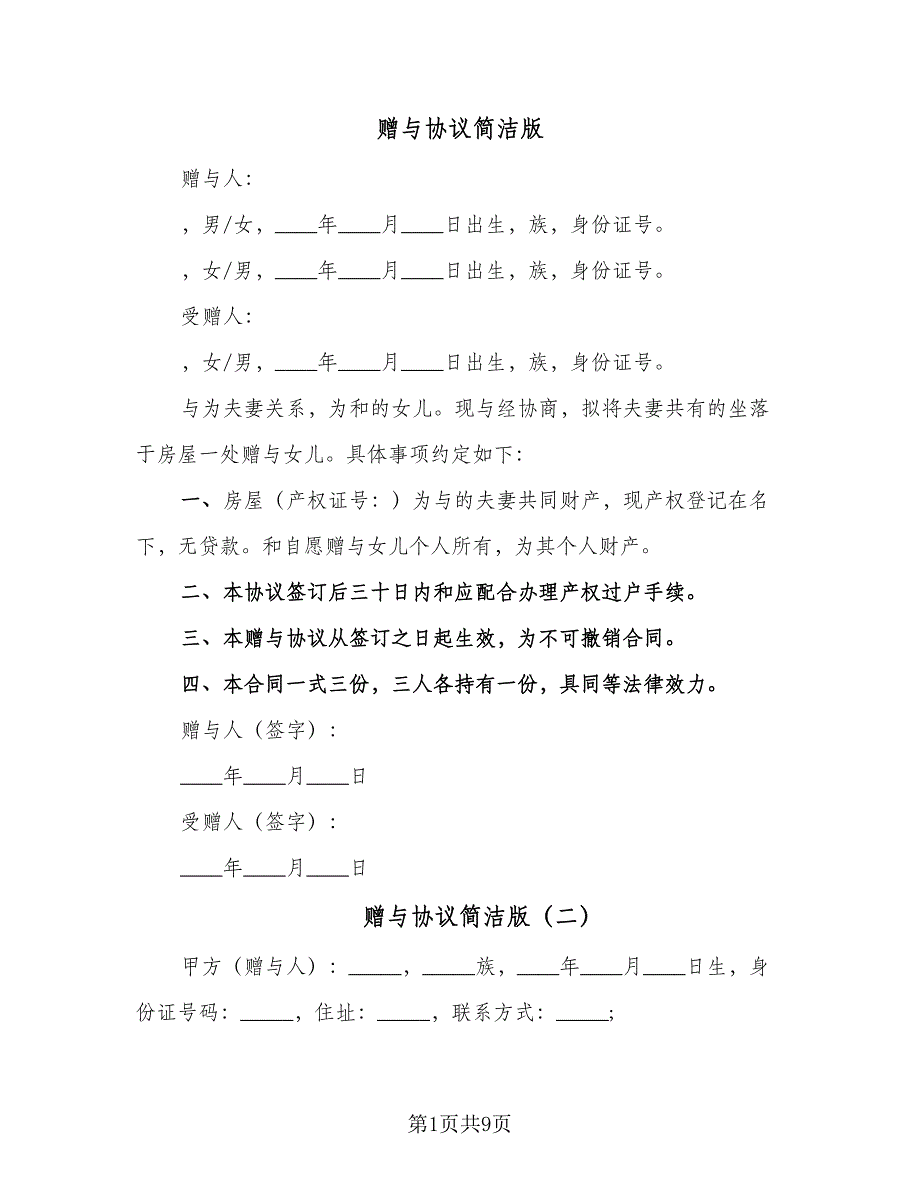 赠与协议简洁版
赠与人：
，男/女，____年____月____日出生，族，身份证号。
，女/男，____年____月____日出生，族，身份证号。
受赠人：
，女/男，____年____月____日出生，族，身份证号。
与为夫妻关系，为和的女儿。现与经协商，拟将夫妻共有的坐落
于房屋一处赠与女儿。具体事项约定如下：
一、房屋（产权证号：）为与的夫妻共同财产，现产权登记在名
下，无贷款。和自愿赠与女儿个人所有，为其个人财产。
二、本协议签订后三十日内和应配合办理产权过户手续。
三、本赠与协议从签订之日起生效，为不可撤销合同。
四、本合同一式三份，三人各持有一份，具同等法律效力。
赠与人（签字）：
____年____月____日
受赠人（签字）：
____年____月____日
赠与协议简洁版（二）
甲方（赠与人）：_____，_____族，____年____月____日生，身
份证号码：_____，住址：_____，联系方式：_____;
第1页共9页